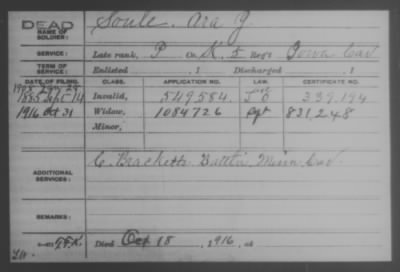 DEAD
NAME OF SOLDIER: Soule, Ara G.
SERVICE: Late rank, P Co. K, 5 Reg't Iowa Cav
TERM OF SERVICE: Enlisted , 1 Discharged , 1
DATE OF FILING. CLASS. APPLICATION NO. LAW. CERTIFICATE NO.
1885 Sept 14 Invalid, 549584. 339.194
1916 Oct 31 Widow, 1084726 831,248
Minor,
ADDITIONAL SERVICES: C. Bracketts Battn. Minn. Cav.
REMARKS:
Died Oct 18, 1916, at